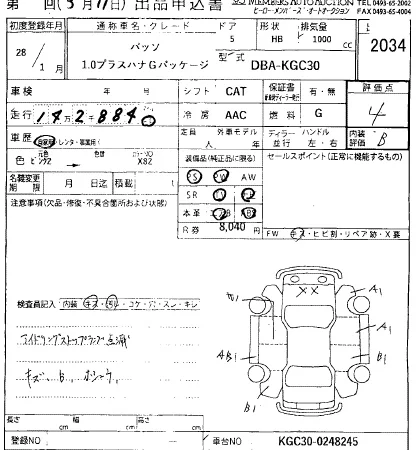 第 回(5月17日)出品申込書
MEMBERS AUTO AUCTION
TEL 0493-65-2002
ヒーロー・メンバーズ・オートオークション FAX 0493-65-4004
初度登録年月 通称車名・グレード ドア 形状 排気量
28年 1月 パッソ 5 HB 1000cc 2034
1.0プラスハナGパッケージ 型式 DBA-KGC30
車検 年 月 シフト CAT 保証書 有・無 評価点
走行 142884 冷房 AAC 燃料 G 4
車歴 自家用・レンタ・ 定員 人 外車モデル 年 ディーラー 並行 ハンドル 左・右 内装 B
色 元色 ピンク 色替 カラーNO X82 装備品(純正品に限る) セールスポイント(正常に機能するもの)
名義変更期限 月 日迄 積載 PS PW AW
SR
注意事項(欠品・修復・不具合箇所および状態) 本革 AB
R券 8,040 FW キズ・ヒビ割・リペア跡・X要
検査員記入 内装 キズ・コゲ・穴・スレ・キレ
アイドリングストップランプ点滅
キズ、B、
A1
A1
AB1
A1
B1
B1
長さ cm 幅 cm 高さ cm
登録NO 車台NO KGC30-0248245